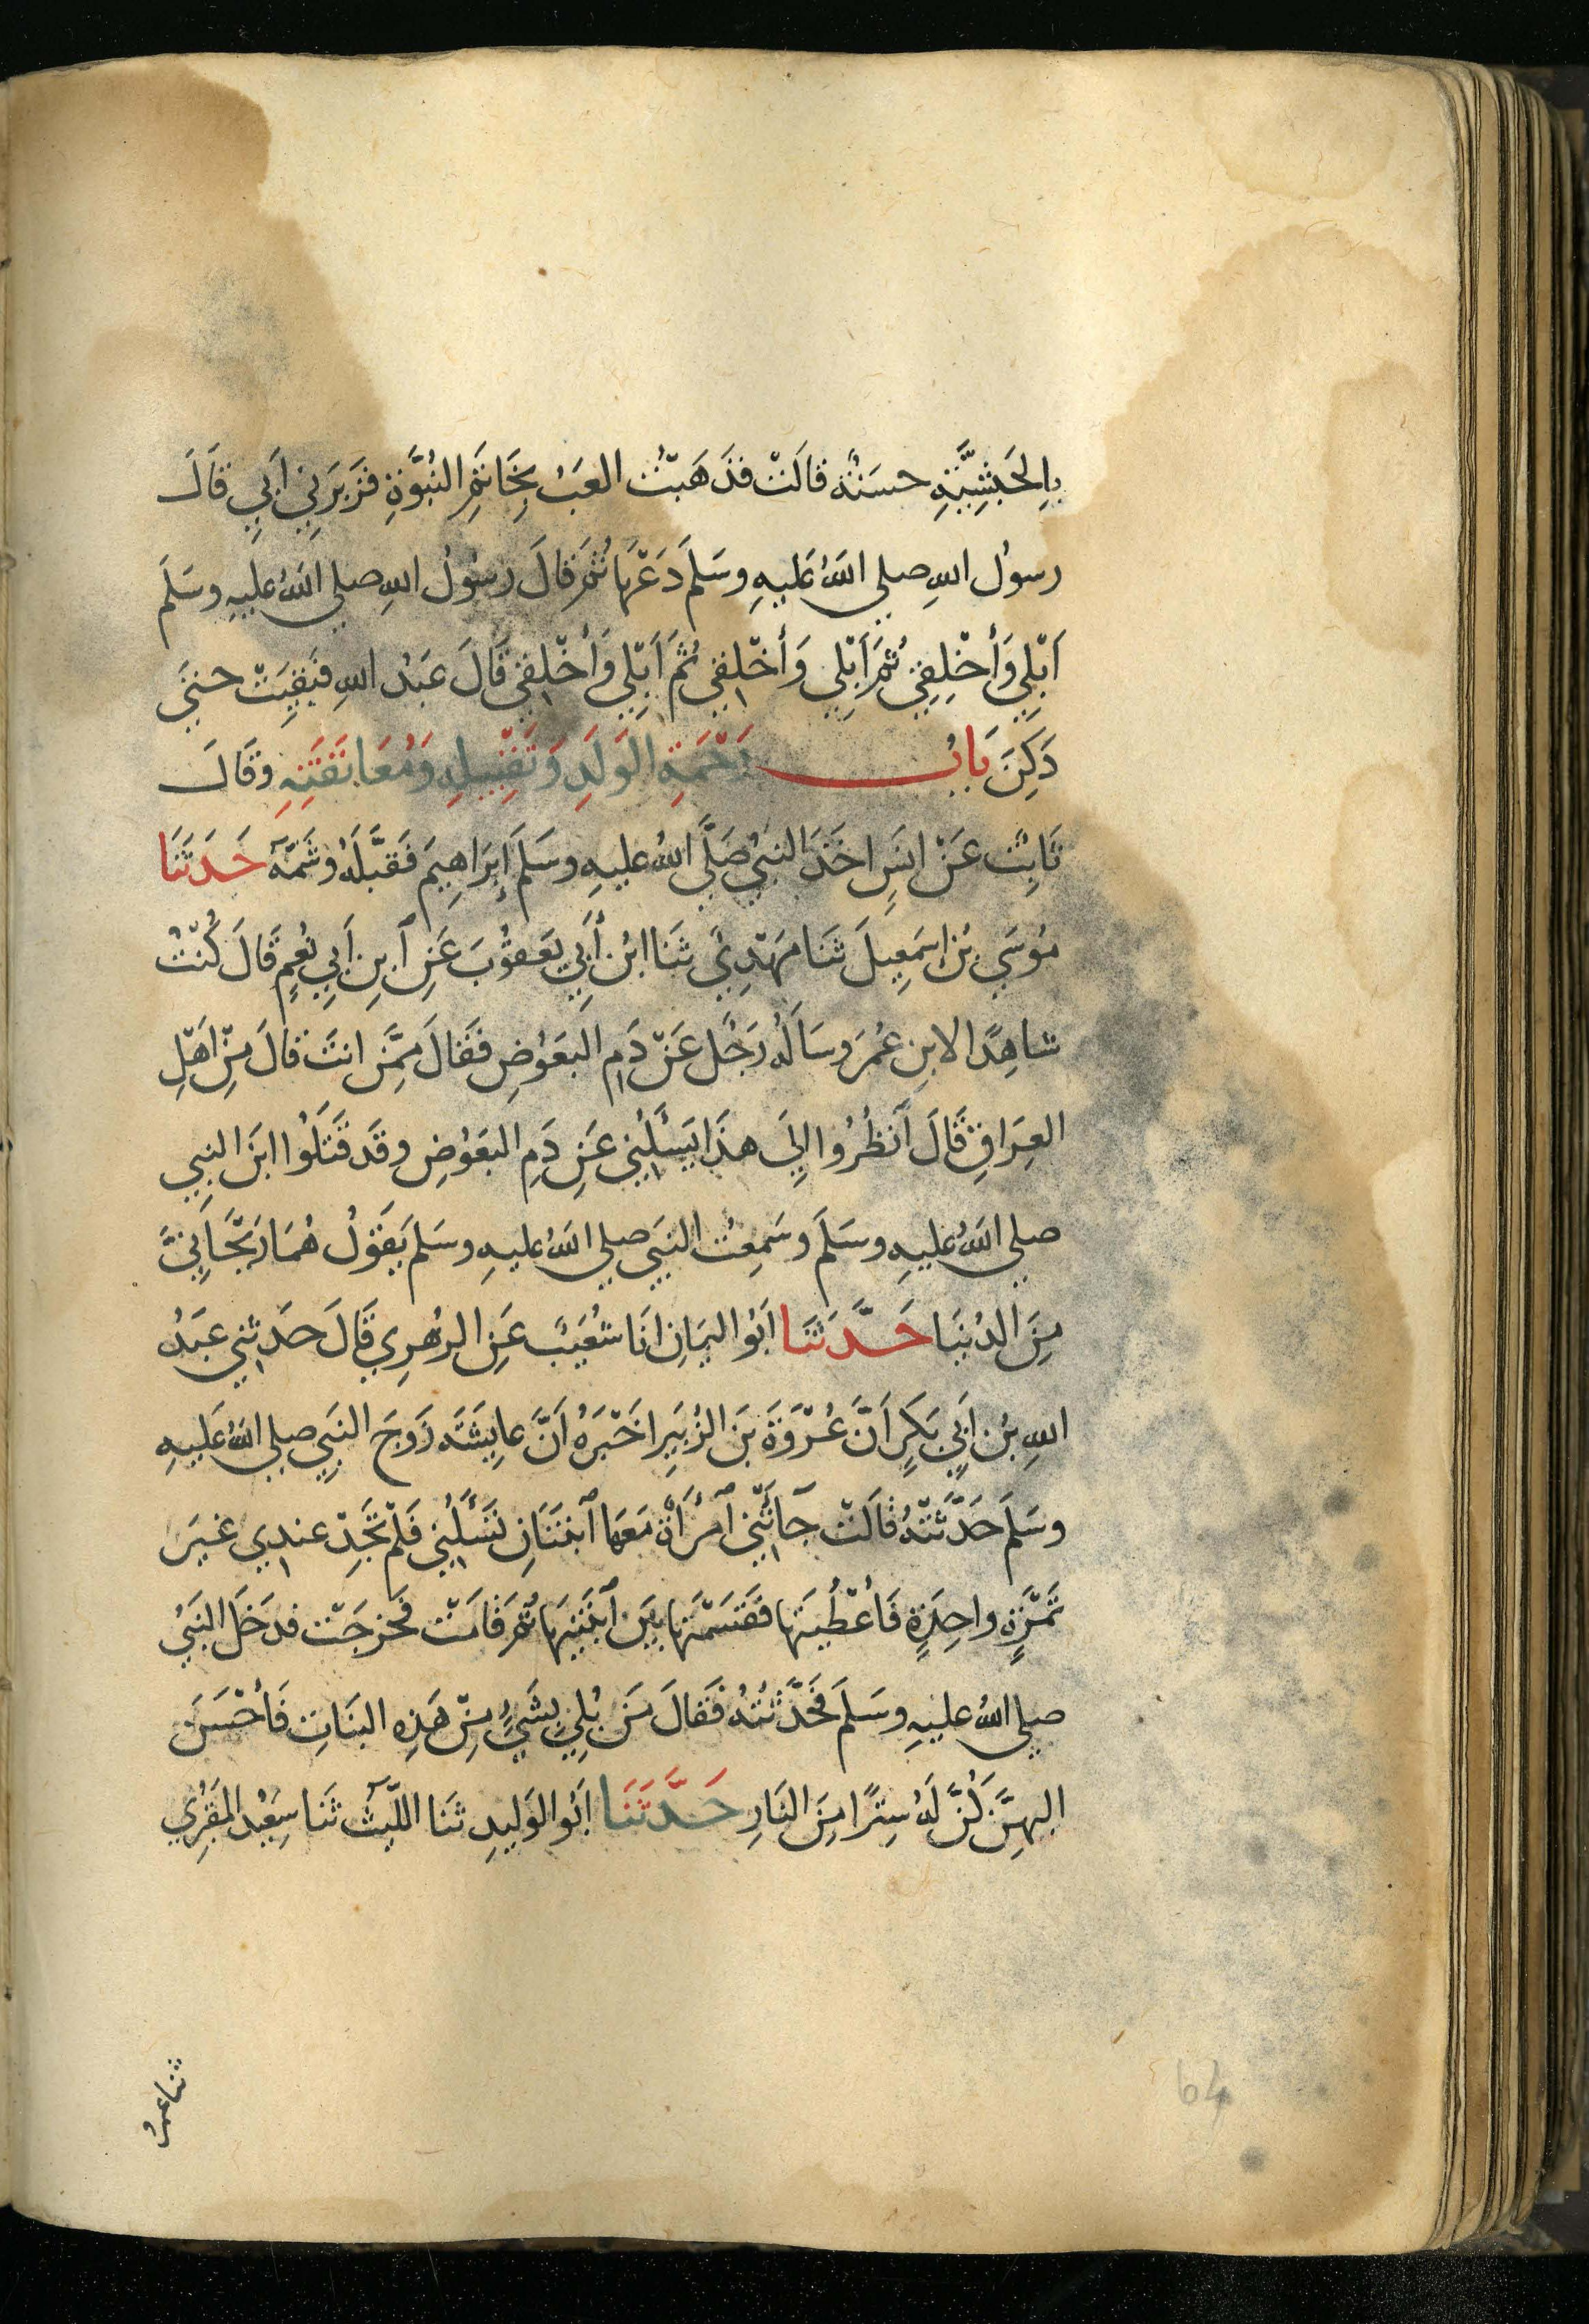 بِالحَبَشِيَّةِ حسَنَةٌ قالَتْ فذَهَبْتُ العَبُ بِخَاتَمِ النُبُوَّةِ فزَبَرَنِي أَبِي قَالَ
رسولُ اللهِ صلي اللهُ عَليهِ وسَلَمَ دَعْهَا ثُمَّ قالَ رسُولُ اللهِ صلي اللهُ عليهِ وسَلَمَ
اَبْلِي وَأَخْلِفِي ثُمَّ اَبْلِي وَأَخْلِفِي ثُمَّ اَبْلِي وَأَخْلِفِي قَالَ عَبْدُ اللهِ فبَقِيَتْ حتيَ
دَكِنَ بَابُ رَحْمَةِ الوَلَدِ وَتَقْبِيلِهِ وَمُعَانَقَتِهِ وقَالَ
ثَابِتٌ عَنْ انَسٍ اخَذَ النبيُ صَلَّي اللهُ عليهِ وسَلَمَ إِبرَاهِيمَ فَقبَّلَهُ وشَمَّهُ حَدَثَنَا
مُوسَي بْنُ إِسمَعِيلَ ثَنَا مَهْدِيٌ ثَنَا ابْنُ أَبِي يَعقُوْبَ عَنِ ابنِ أَبِي نُعمٍ قَالَ كُنْتُ
شاهِدًا لابنِ عُمَرَ وسَاَلَهُ رَجُلٌ عَنْ دَمِ البَعَوُضِ فقَالَ مِمَّنْ انتَ قالَ مِنْ اَهْلِ
العِرَاقِ قَالَ اَنظُرُوا إِلَى هذَا يَسْئَلُنِي عَنِ دَمِ البَعَوُضِ وقَد قَتَلُوا ابنَ النبِي
صلي اللهُ عليهِ وسَلَمَ وسَمِعْتُ النبَيِ صلي اللهُ عليهِ وسَلمَ يَقوُلُ هُمَا رَيحَانِيَ
مِنَ الدُنيَا حَدَّثَنَا اَبُو اليَمَانِ انَا شُعَيبٌ عَنِ الزهْرِي قَالَ حدَثنِي عَبْدُ
اللهِ بْنُ اَبِي بَكرٍ أنَّ عُرْوَةَ بنَ الزُبَيرِ اخَبَرَهُ اَنَّ عايِشَةَ زَوجَ النبَيِ صلي اللهُ عَليهِ
وسَلَمَ حَدَّثَتْهُ قالَتْ جَآتْنِي آمْرَأةٌ مَعَهَا آبنَتَانِ تَسْأَلُنِي فَلَمْ تَجِدْ عندِي غيرَ
تَمْرَةٍ واحِدَةٍ فَاَعْطَيتُهَا فقَسَمَتْهَا بَينَ آبْنَتَيْهَا ثُمَّ قامَتْ فخرجَتْ فدَخلَ النَبيُ
صلي اللهُ عليهِ وسَلَمَ فَحَدَّثتُهُ فَقالَ مَنْ بُلِيَ بِشَيٍْ مِنْ هَذِهِ البَنَاتِ فَأَحْسَنَ
اليهِنَّ كُنَّ لَهُ سِترًا مِنَ النَارِ حَدَّثَنَا اَبُو الوَلِيدِ ثَنا اللّيثُ ثَنا سِعَيْدُ المَقبُرِي
ثنا عمرُ
64